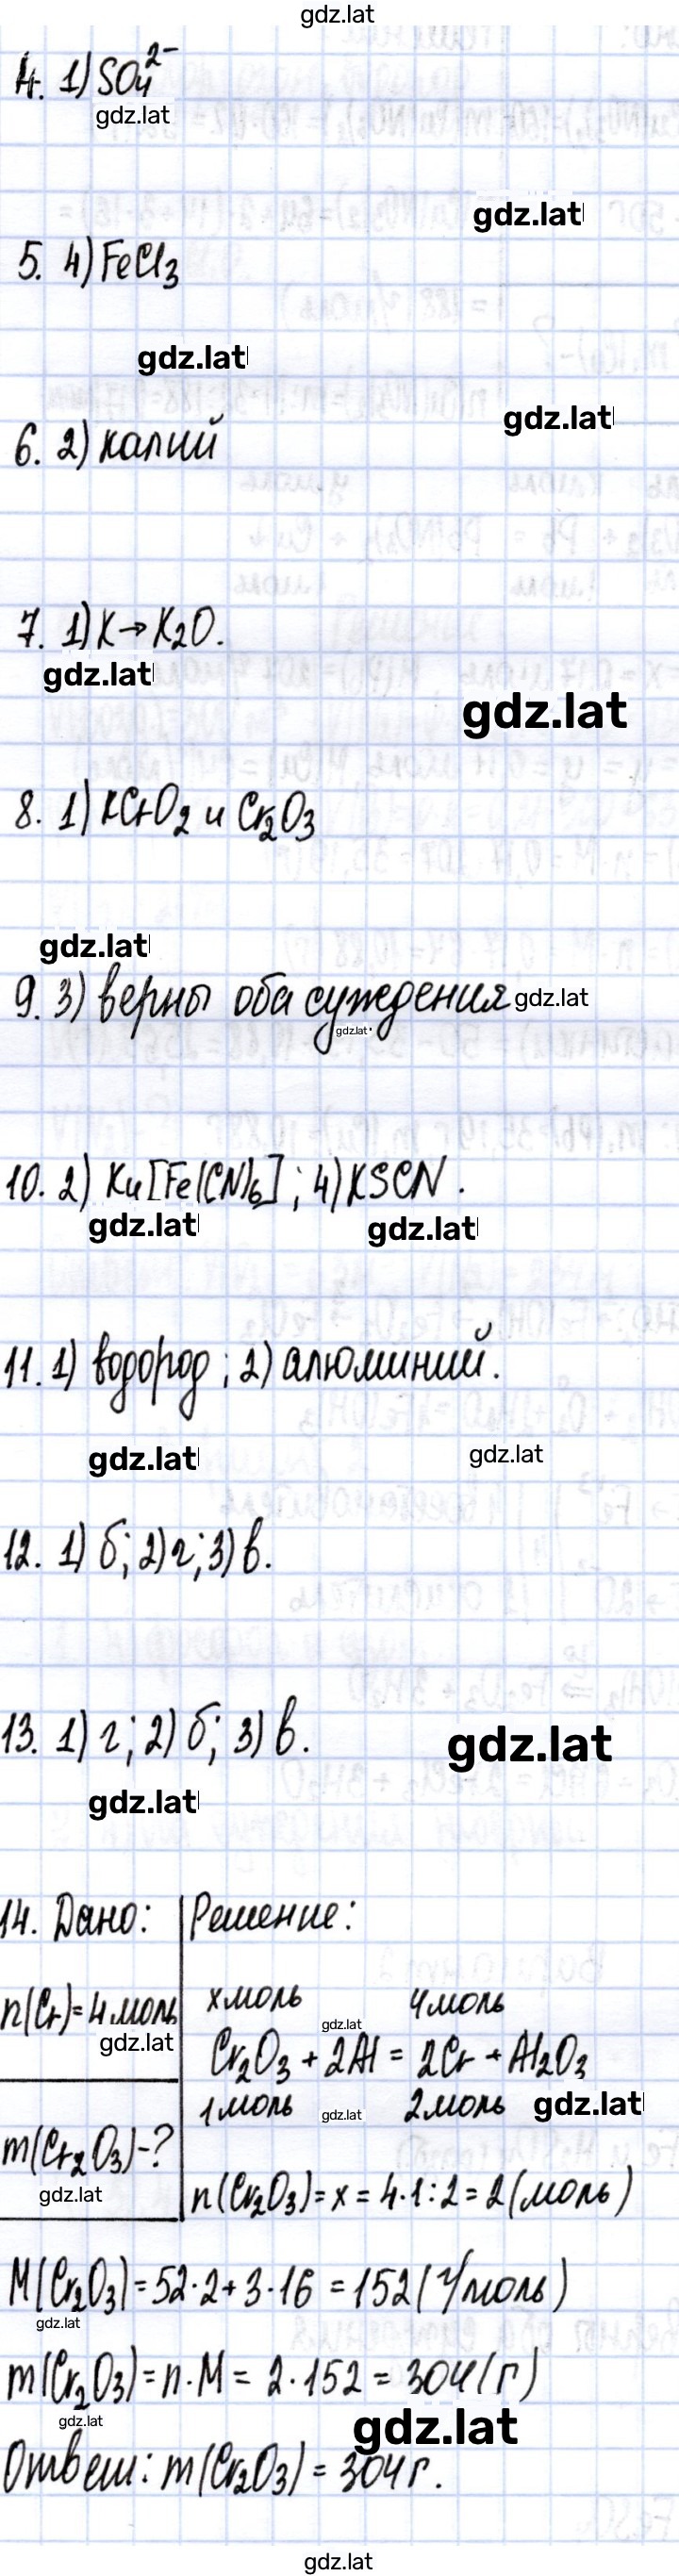 gdz.lat
4. 1) SO₄²⁻
gdz.lat
gdz.lat
5. 4) FeCl₃
gdz.lat
gdz.lat
6. 2) калий
7. 1) K → K₂O.
gdz.lat
gdz.lat
8. 1) KCrO₂ и Cr₂O₃
gdz.lat
9. 3) верны оба суждения gdz.lat
gdz.lat
10. 2) K₄[Fe(CN)₆]; 4) KSCN.
gdz.lat gdz.lat
11. 1) водород; 2) алюминий.
gdz.lat gdz.lat
12. 1) б; 2) г; 3) в.
13. 1) г; 2) б; 3) в. gdz.lat
gdz.lat
14. Дано: Решение:
n(Cr)=4 моль
gdz.lat
m(Cr₂O₃)-?
gdz.lat
x моль 4 моль
gdz.lat
Cr₂O₃ + 2Al = 2Cr + Al₂O₃
1 моль gdz.lat 2 моль gdz.lat
n(Cr₂O₃) = x = 4·1:2 = 2 (моль)
M(Cr₂O₃) = 52·2+3·16 = 152 (г/моль)
gdz.lat
m(Cr₂O₃) = n·M = 2·152 = 304 (г)
gdz.lat gdz.lat
Ответ: m(Cr₂O₃) = 304 г.
gdz.lat